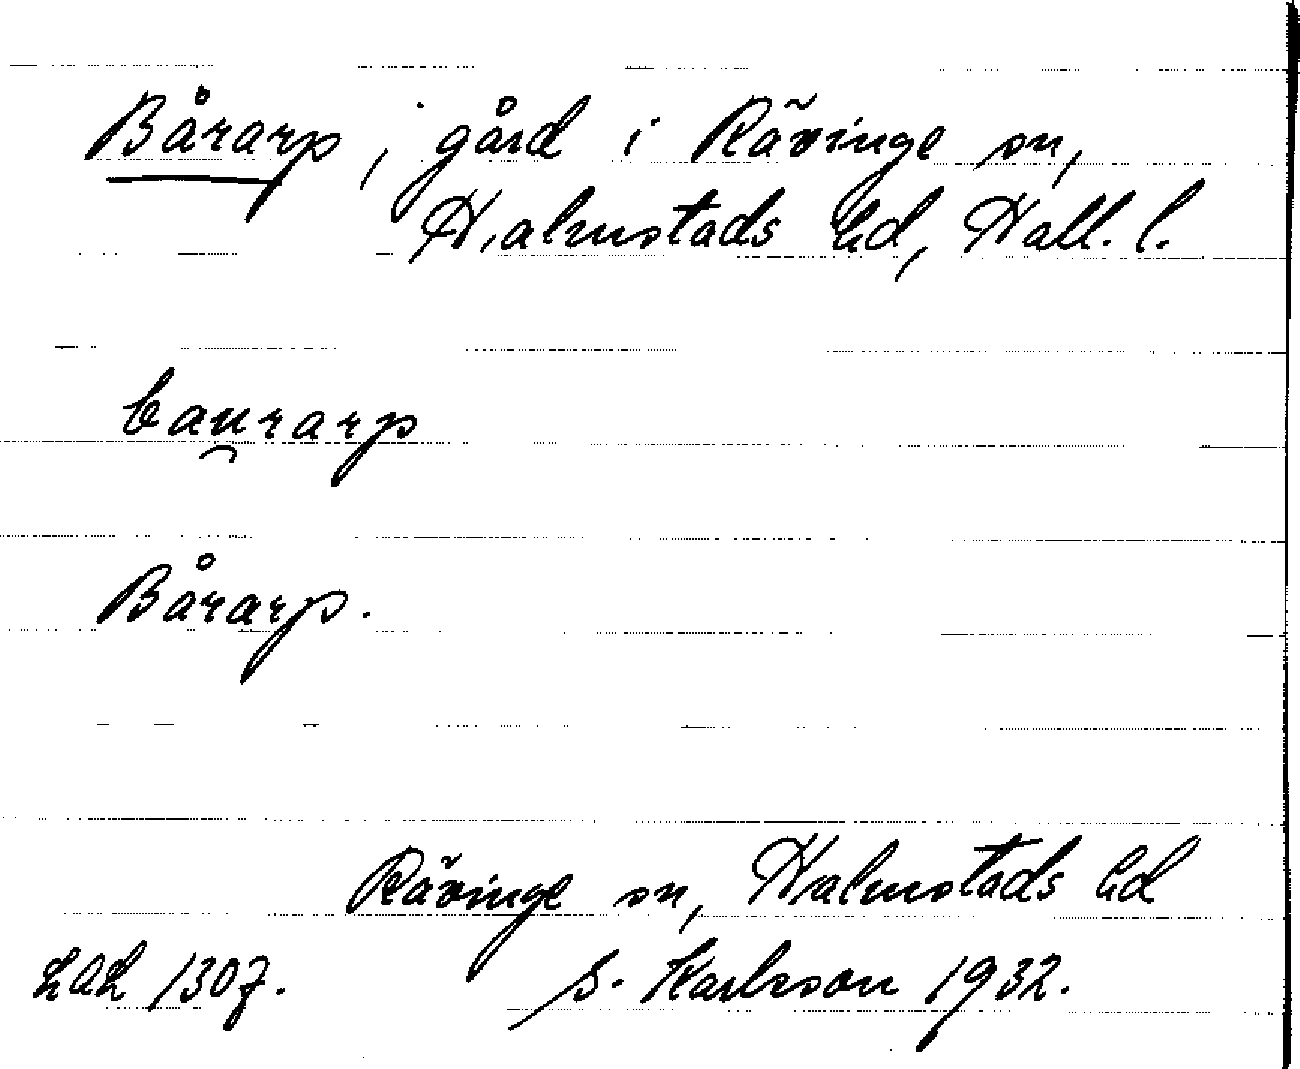 Bårarp, gård i Rävinge sn,
Halmstads hd, Hall. l.
bau̯rarp
Bårarp.
Rävinge sn, Halmstads hd
LAL 1307. S. Karlsson 1932.